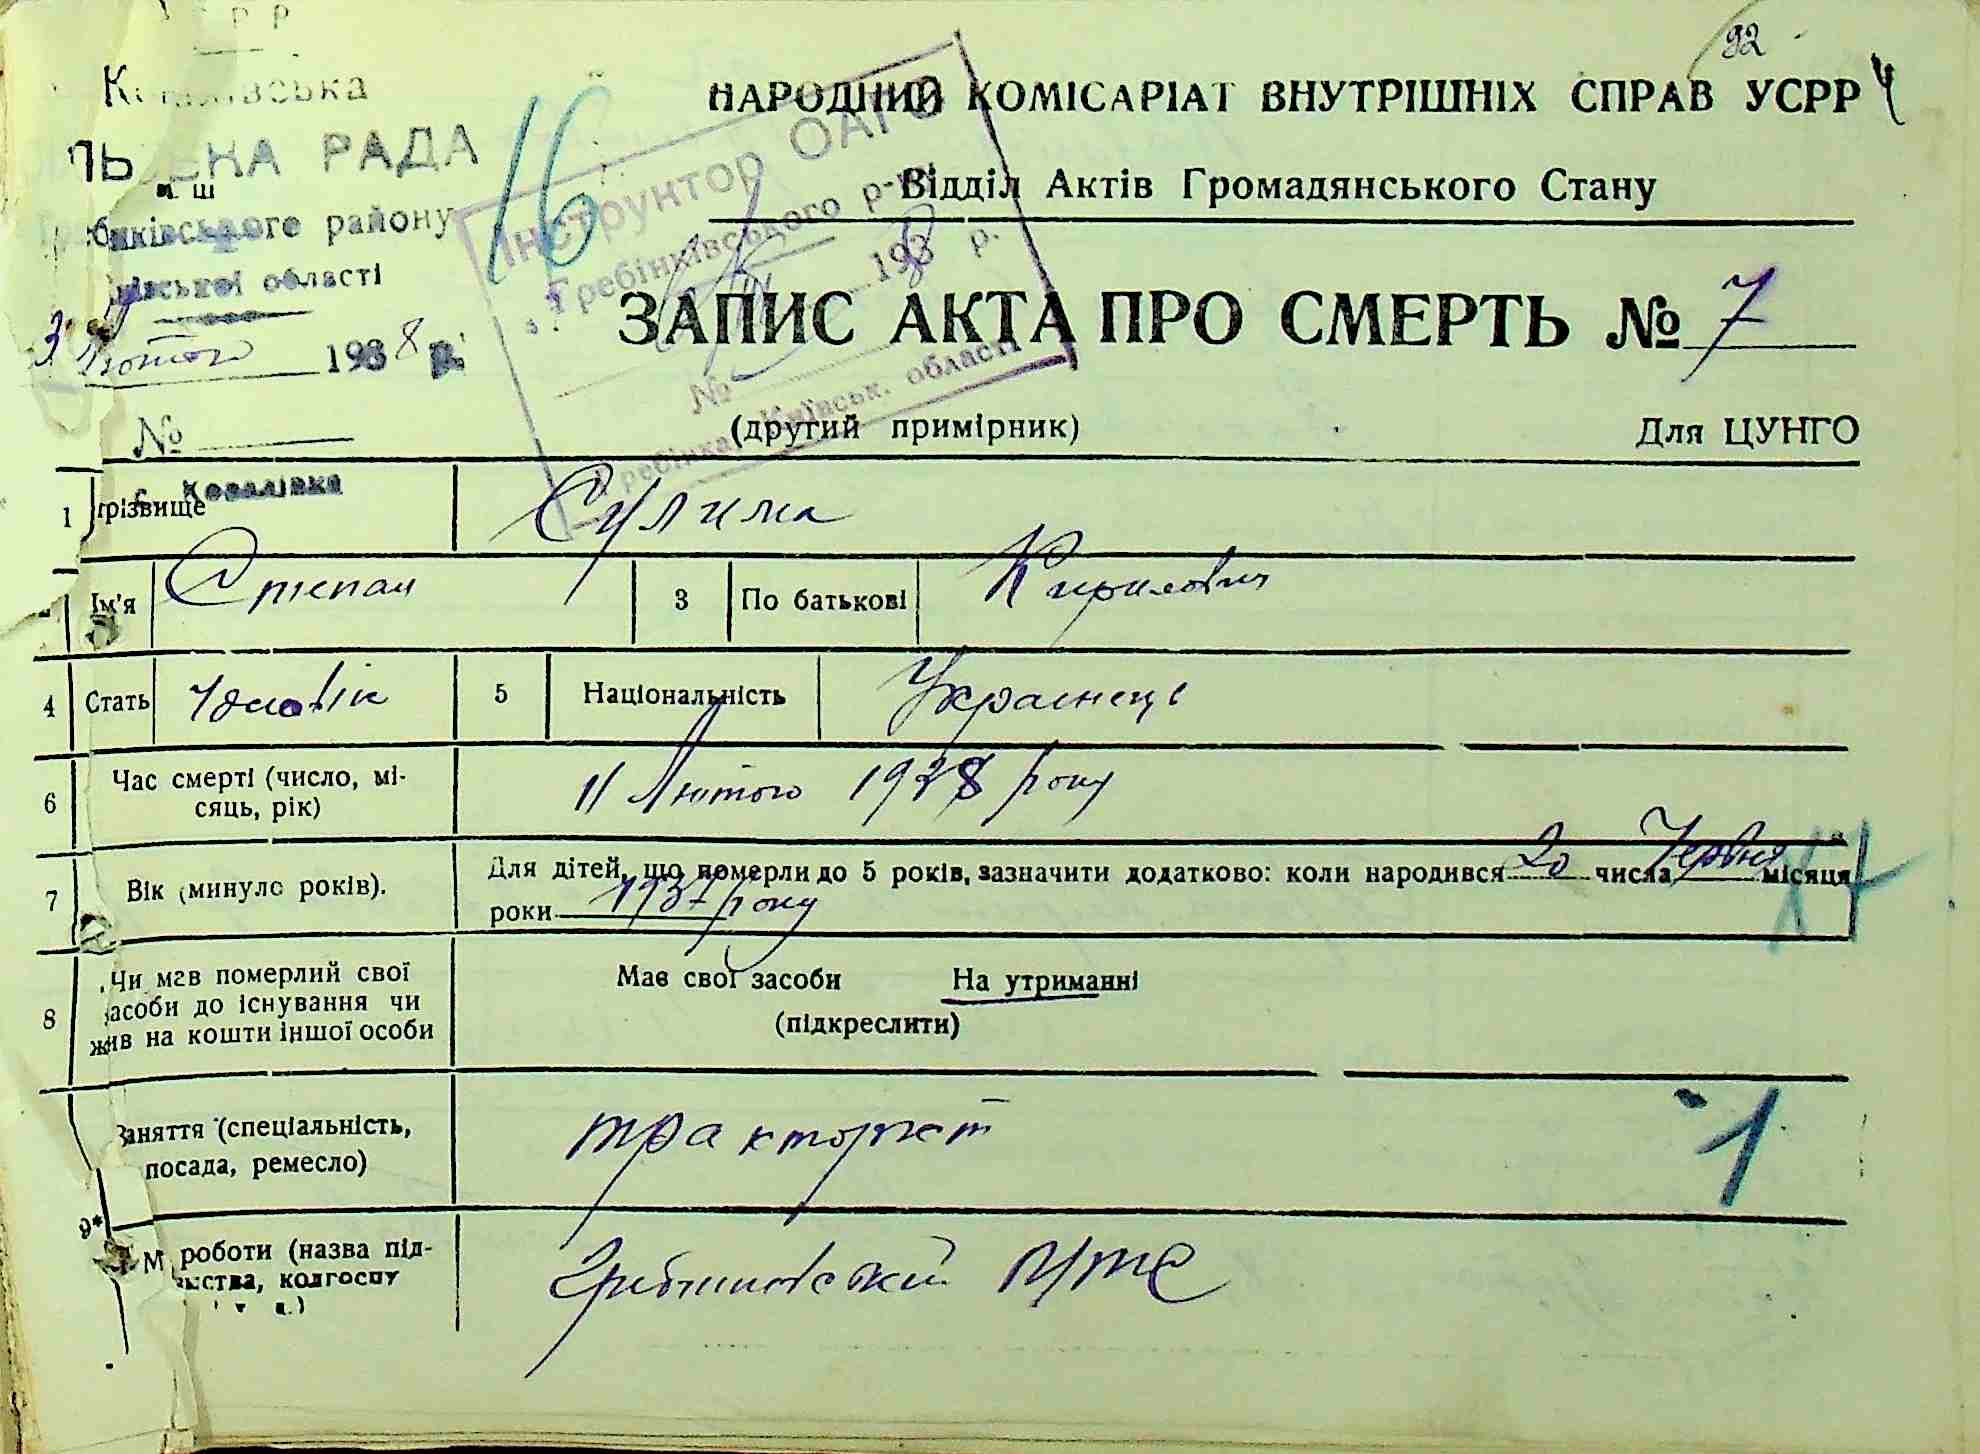 92
НАРОДНИЙ КОМІСАРІАТ ВНУТРІШНІХ СПРАВ УСРР
Відділ Актів Громадянського Стану
РАДА
району
області
3 лютого 1938 р.
№
16
Інструктор ОАГС
Гребінківського р-ну
1938 р.
№
Гребінка, Київськ. області
ЗАПИС АКТА ПРО СМЕРТЬ № 7
(другий примірник) Для ЦУНГО
с. Ковалівка
1 прізвище Сулима
Ім'я Степан 3 По батькові Кирилович
4 Стать Чоловік 5 Національність Українець
6 Час смерті (число, мі-
сяць, рік) 11 Лютого 1938 року
7 Вік (минуло років). Для дітей, що померли до 5 років, зазначити додатково: коли народився 20 числа Червня місяця
роки 1937 року
8 Чи мав померлий свої
засоби до існування чи
жив на кошти іншої особи
Має свої засоби На утриманні
(підкреслити)
Заняття (спеціальність,
посада, ремесло) тракторист
1
9*
роботи (назва під-
колгоспу
Гребінківський МТС